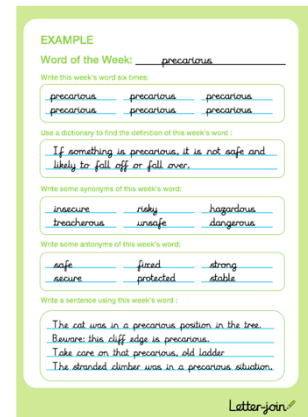 EXAMPLE
Word of the Week: precarious
Write this week's word six times:
precarious precarious precarious
precarious precarious precarious
Use a dictionary to find the definition of this week's word :
If something is precarious, it is not safe and
likely to fall off or fall over.
Write some synonyms of this week's word:
insecure risky hazardous
treacherous unsafe dangerous
Write some antonyms of this week's word:
safe fixed strong
secure protected stable
Write a sentence using this week's word :
The cat was in a precarious position in the tree.
Beware: this cliff edge is precarious.
Take care on that precarious, old ladder
The stranded climber was in a precarious situation.
Letter-join